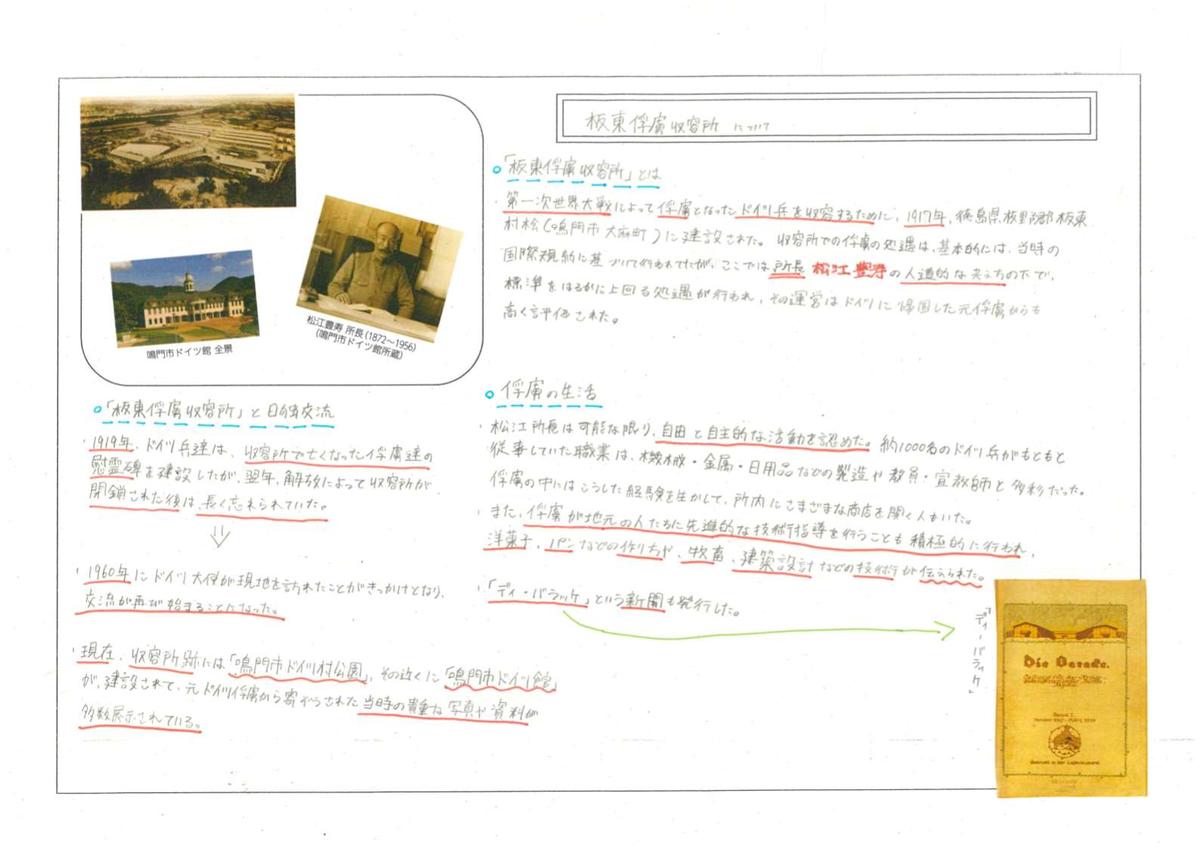 板東俘虜収容所 について
「板東俘虜収容所」とは
・第一次世界大戦によって俘虜となったドイツ兵を収容するために、1917年、徳島県板野郡板東
村松(鳴門市大麻町)に建設された。収容所での俘虜の処遇は、基本的には、当時の
国際規約に基づいて行われてたが、ここでは所長 松江豊寿の人道的な考えの下で、
標準をはるかに上回る処遇が行われ、その運営はドイツに帰国した元俘虜からも
高く評価された。
俘虜の生活
・松江所長は可能な限り、自由と自主的な活動を認めた。約1000名のドイツ兵がもともと
従事していた職業は、機械・金属・日用品などの製造や教員・宣教師と多彩だった。
俘虜の中にはこうした経験を生かして、所内にさまざまな商店を開く人もいた。
・また、俘虜が地元の人たちに先進的な技術指導を行うことも積極的に行われ、
洋菓子、パンなどの作り方や、牧畜、建築設計などの技術が伝えられた。
・「ディ・バラッケ」という新聞も発行した。
「ディーバラッケ」
Die Baracke.
松江豊寿 所長(1872〜1956)
(鳴門市ドイツ館所蔵)
鳴門市ドイツ館 全景
「板東俘虜収容所」と日独交流
・1919年、ドイツ兵達は、収容所で亡くなった俘虜達の
慰霊碑を建設したが、翌年、解放によって収容所が
閉鎖された後は、長く忘れられていた。
⇓
・1960年にドイツ大使が現地を訪れたことがきっかけとなり、
交流が再び始まることになった。
・現在、収容所跡には「鳴門市ドイツ村公園」、その近くに「鳴門市ドイツ館」
が、建設されて、元ドイツ俘虜から寄ぞうされた当時の貴重な写真や資料が
多数展示されている。